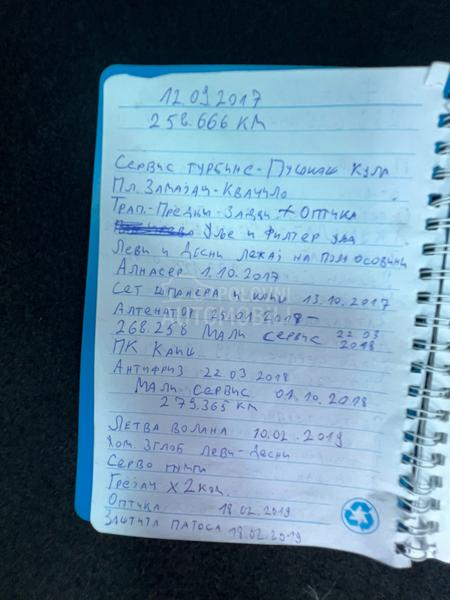 12.09 2017
258.666 KM
Сервис турбине - Пушиаш Кула
Пл. Замајац - Квачило
Трап. - Предњи - Задњи + Оптика
Уље и филтер уља
Леви и десни лежај на полуосовини
Алнасер 1.10.2017
Сет шпанера и 13.10.2017
Алтенатор 25.01.2018 -
268.258 Мали сервис 22 03 2018
ПК Каиш
Антифриз 22 03 2018
Мали сервис 01.10.2018
279.365 KM
Летва волана 10.02.2019
Хом. зглоб леви - десни
Серво пумпа
Грејач x 2 ком.
Оптика 18.02.2019
Заштита патоса 18.02.2019
POLOVNI
AUTOMOBILI